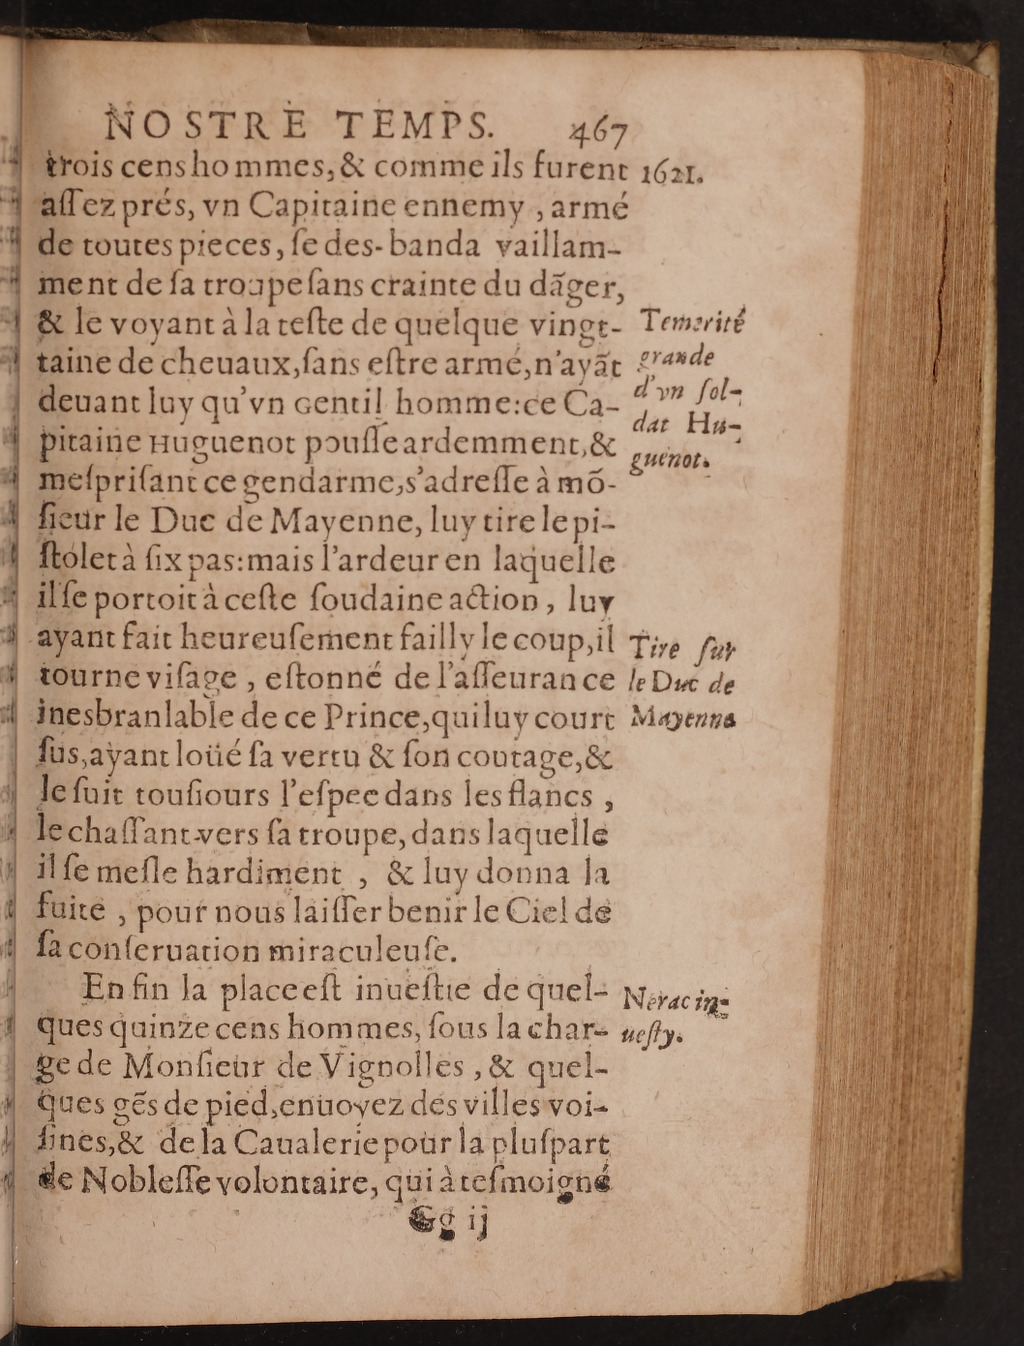 NOSTRE TEMPS. 467
trois cens hommes, & comme ils furent 1621.
aſſez prés, vn Capitaine ennemy, armé
de toutes pieces, ſe des-banda vaillam-
ment de ſa troupe ſans crainte du dãger,
& le voyant à la teſte de quelque vingt-
taine de cheuaux, ſans eſtre armé, n'ayãt
deuant luy qu'vn Gentil homme: ce Ca-
pitaine Huguenot pouſſe ardemment, &
meſpriſant ce gendarme, s'adreſſe à mõ-
ſieur le Duc de Mayenne, luy tire le pi-
ſtolet à ſix pas: mais l'ardeur en laquelle
il ſe portoit à ceſte ſoudaine action, luy
ayant fait heureuſement failly le coup, il
tourne viſage, eſtonné de l'aſſeurance
inesbranlable de ce Prince, qui luy court
ſus, ayant loüé ſa vertu & ſon courage, &
le ſuit touſiours l'eſpee dans les flancs,
le chaſſant vers ſa troupe, dans laquelle
il ſe meſle hardiment, & luy donna la
fuite, pour nous laiſſer benir le Ciel de
ſa conſeruation miraculeuſe.
En fin la place eſt inueſtie de quel-
ques quinze cens hommes, ſous la char-
ge de Monſieur de Vignolles, & quel-
ques gẽs de pied, enuoyez des villes voi-
ſines, & de la Caualerie pour la pluſpart
de Nobleſſe volontaire, qui à teſmoigné
Gg ij
Temerité
grande
d'vn ſol-
dat Hu-
guenot.
Tire ſur
le Duc de
Mayenne
Nerac in-
ueſty.